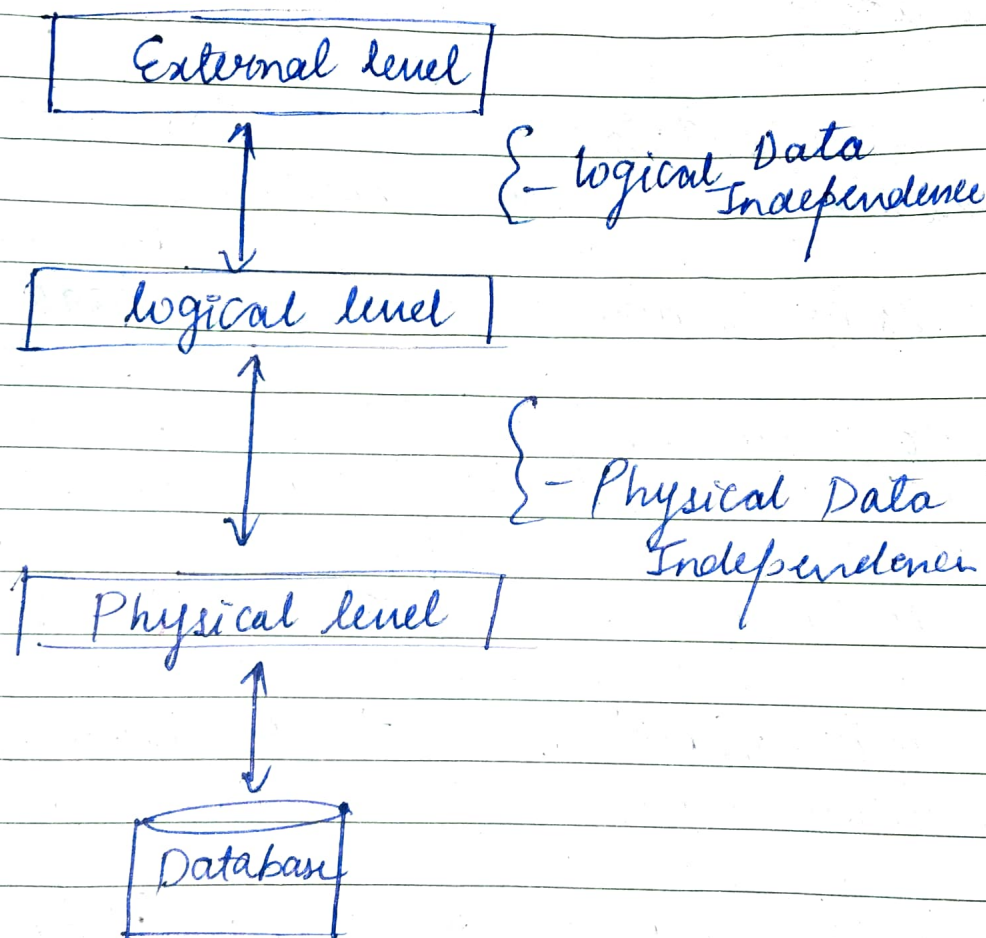 External level
{- logical Data
Independence
logical level
{- Physical Data
Independence
Physical level
Database